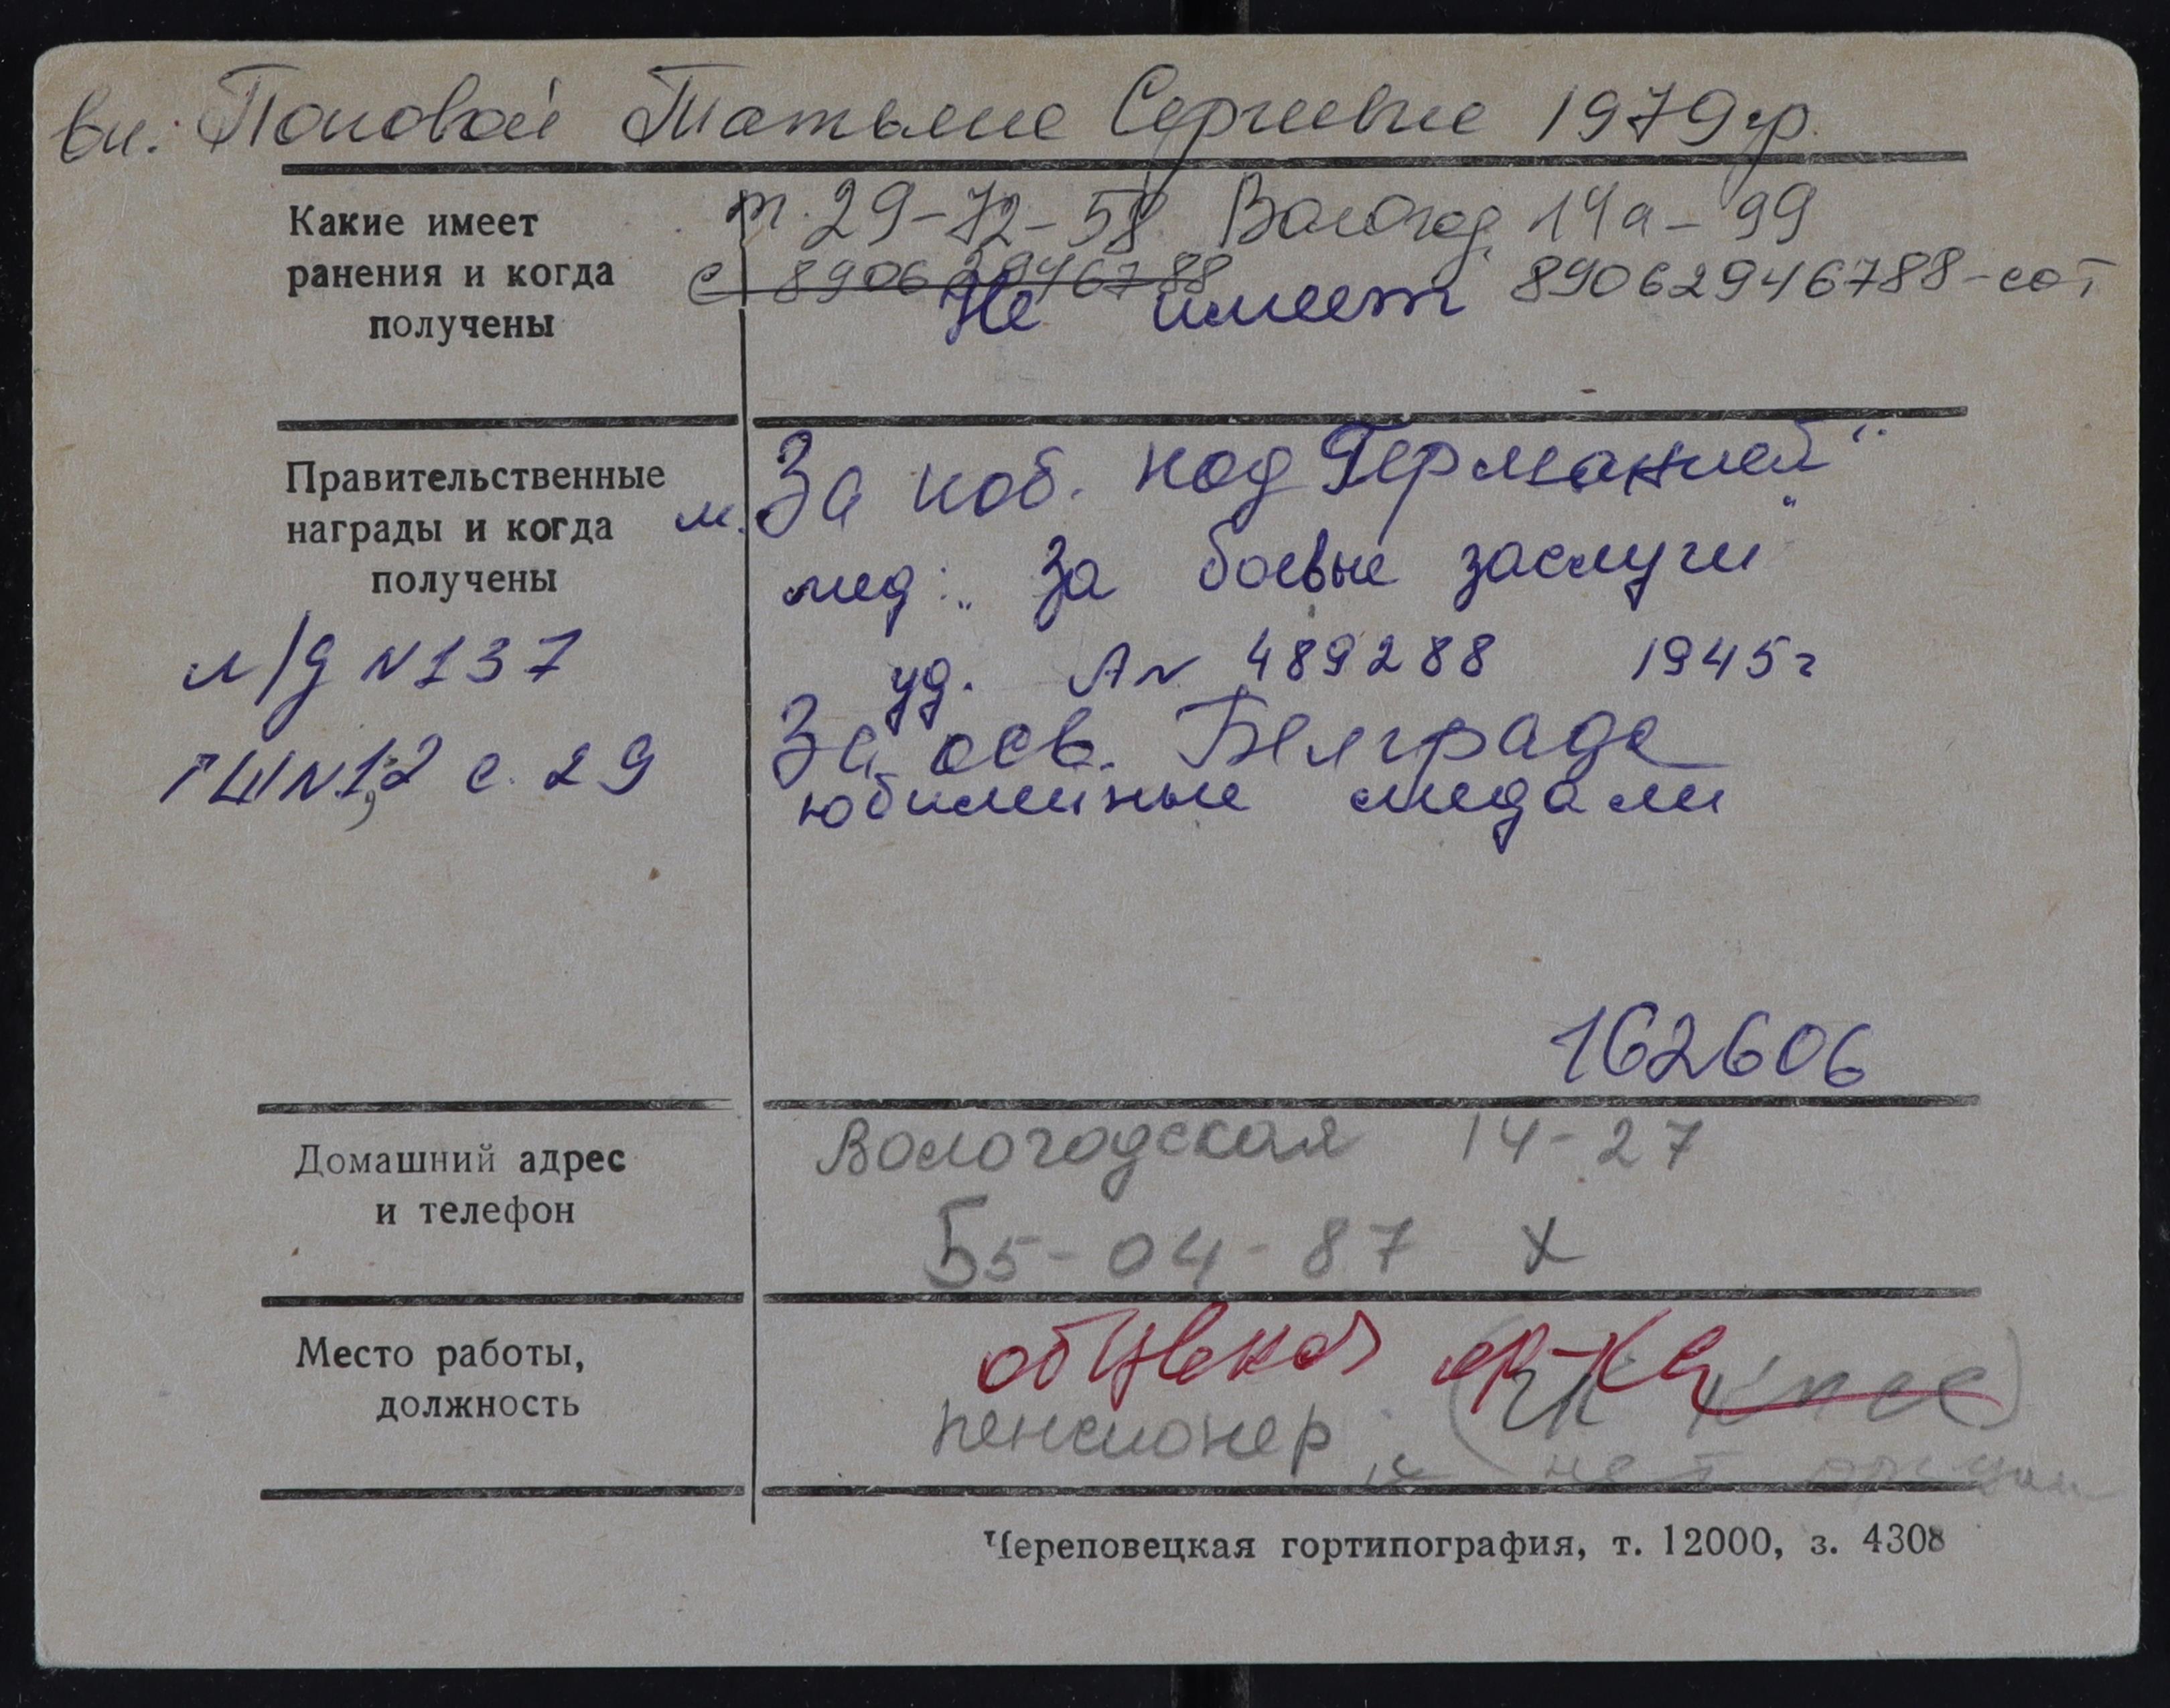 вн: Поповой Татьяне Сергеевне 1979 гр.
Какие имеет
ранения и когда
получены
т. 29-72-58 Вологод, 14а-99
с 89062946788
Не имеет 89062946788-сот
Правительственные
награды и когда
получены
м. За поб. над Германией"
мед: „За боевые заслуги"
уд. А№ 489288 1945г
За осв. Белграда
юбилейные медали
л/д №137
ГШ№1,2 с. 29
162606
Домашний адрес
и телефон
Вологодская 14-27
55-04-87 х
Место работы,
должность
пенсионер
нет
Череповецкая гортипография, т. 12000, з. 4308